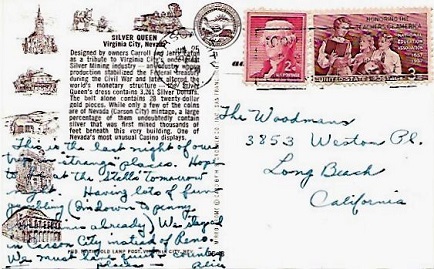 SILVER QUEEN
Virginia City, Nevada
Designed by owners Carroll and
as a tribute to Virginia City's once
Silver Mining industry - an industry whose
production stabilized the Federal treasury
during the Civil War and later altered the
world's monetary structure - the Silver
Queen's dress contains 3,261 Silver Dollars.
The belt alone contains 28 twenty-dollar
gold pieces. While only a few of the coins
are of Nevada (Carson City) mintage, a large
percentage of them undoubtedly contain
silver that was first mined thousands of
feet beneath this very building. One of
Nevada's most unusual Casino displays.
This is the last night of our
trip in strange places. Hope
to be at the Stells tomorrow
night. Having lots of fun
gambling (I'm down to penny
already) We stayed
in Carson City instead of Reno.
We must be quiet
places
RED LAMP POST, VIRGINIA
2¢
HONORING THE
TEACHERS OF AMERICA
NATIONAL EDUCATION ASSOCIATION
1957
UNITED STATES POSTAGE
3¢
The Woodmans
3853 Weston Pl.
Long Beach
California